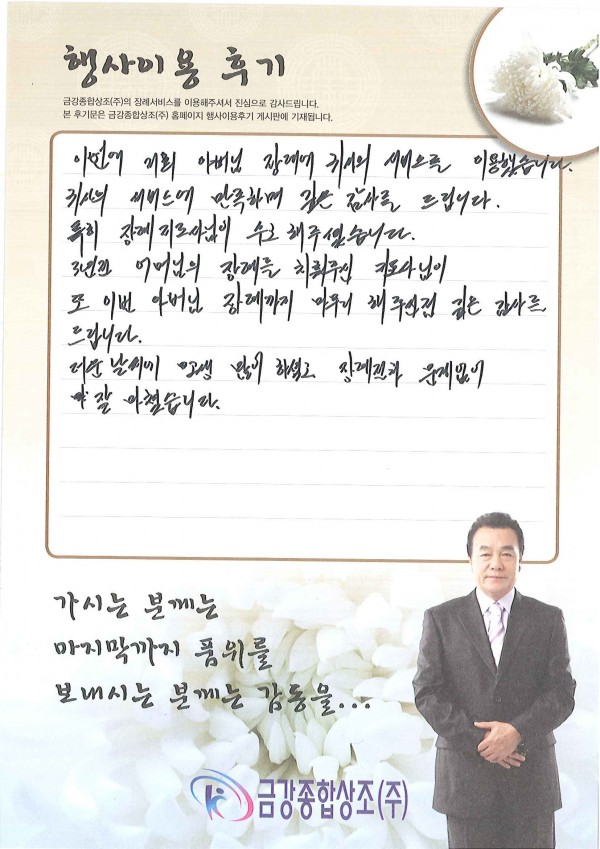 행사이용 후기
금강종합상조(주)의 장례서비스를 이용해주셔서 진심으로 감사드립니다.
본 후기문은 금강종합상조(주) 홈페이지 행사이용후기 게시판에 기재됩니다.
이번에 저희 아버님 장례에 귀사의 서비스를 이용했습니다.
귀사의 서비스에 만족하며 깊은 감사를 드립니다.
특히 장례지도사님이 수고해주셨습니다.
3년전 어머님의 장례를 치뤄주신 지도사님이
또 이번 아버님 장례까지 마무리 해주신점 깊은 감사를
드립니다.
더운 날씨에 고생 많이 하셨고 장례절차 문제없이
잘 마쳤습니다.
가시는 분께는
마지막까지 품위를
보내시는 분께는 감동을...
금강종합상조(주)